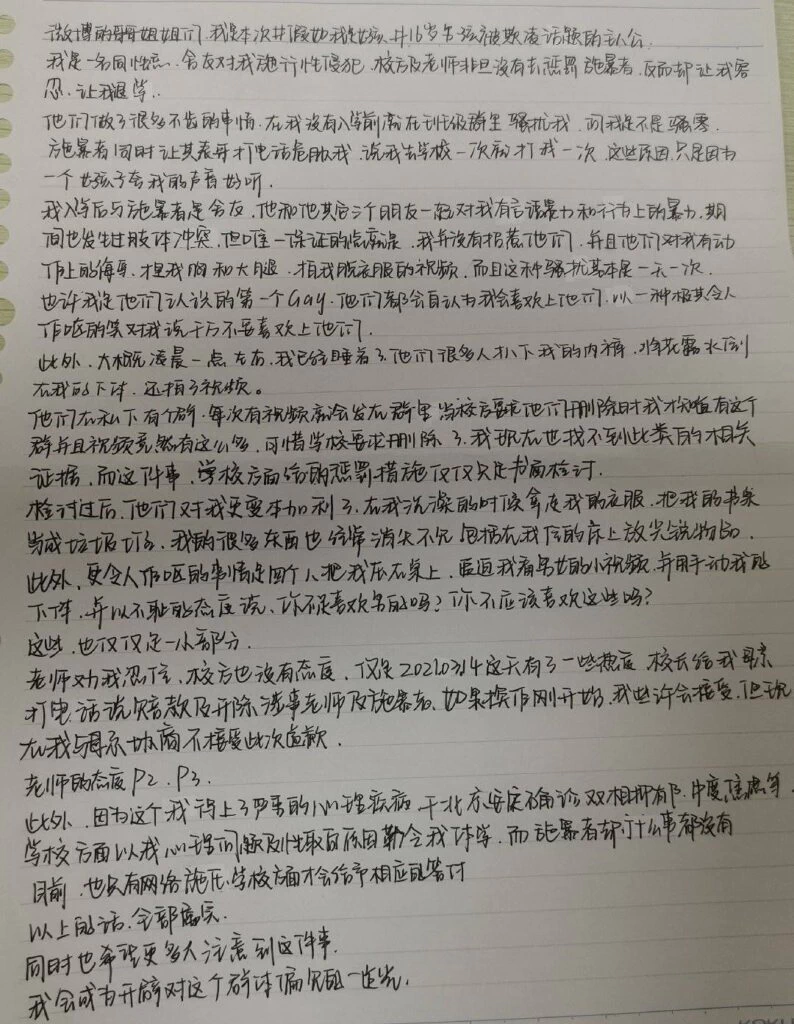 微博的哥哥姐姐们,我是本次#假如我是女孩#16岁男孩被欺凌话题的主人公.
我是一名同性恋.舍友对我施行性侵犯.校方及老师非但没有去惩罚施暴者,反而却让我容
忍.让我退学.
他们做了很多不齿的事情.在我没有入学前就在班级群里骚扰我,问我是不是骚零.
施暴者同时让其表哥打电话危胁我,说我去学校一次就打我一次,这些原因,只是因为
一个女孩子夸我的声音好听.
我入学后与施暴者是舍友,他和他其它三个朋友一起对我有言语暴力和行为上的暴力,期
间也发生过肢体冲突,但唯一保证的点就是,我并没有招惹他们,并且他们对我有动
作上的侮辱.捏我胸和大腿,拍我脱衣服的视频,而且这种骚扰基本是一天一次.
也许我是他们认识的第一个Gay.他们都会自认为我会喜欢上他们,以一种极其令人
作呕的笑对我说千万不要喜欢上他们.
此外,大概凌晨一点左右,我已经睡着了.他们很多人扒下我的内裤,将花露水倒
在我的下体,还拍了视频。
他们在私下有个群,每次有视频就会发在群里.当校方要求他们删除时我才知道有这个
群并且视频竟然有这么多,可惜学校要求删除了.我现在也找不到此类的相关
证据,而这件事,学校方面给的惩罚措施仅仅只是书面检讨.
检讨过后,他们对我更变本加利了.在我洗澡的时候拿走我的衣服,把我的书桌
当成垃圾桶,我的很多东西也经常消失不见包括在我住的床上放尖锐物品.
此外,更令人作呕的事情是四个人把我压在桌上,逼迫我看男女的小视频,并用手动我的
下体,并以不耻的态度说,你不是喜欢男的吗?你不应该喜欢这些吗?
这些,也仅仅是一小部分.
老师劝我忍住,校方也没有态度,仅是 今天有了一些热度 校长给我母亲
打电话说欠赔款及开除涉事老师及施暴者.如果换作刚开始,我也许会接受,但现
在我与母亲协商不接受此次道歉.
老师的态度P2.P3.
此外,因为这个我得上了严重的心理疾病 于北京安定确诊双相抑郁.中度焦虑等.
学校方面以我心理问题及性取向原因勒令我休学,而施暴者却什么事都没有
目前,也只有网络施压.学校方面才会给予相应的答付
以上的话,全部属实.
同时也希望更多人注意到这件事.
我会成为开辟对这个群体偏见的一道光.